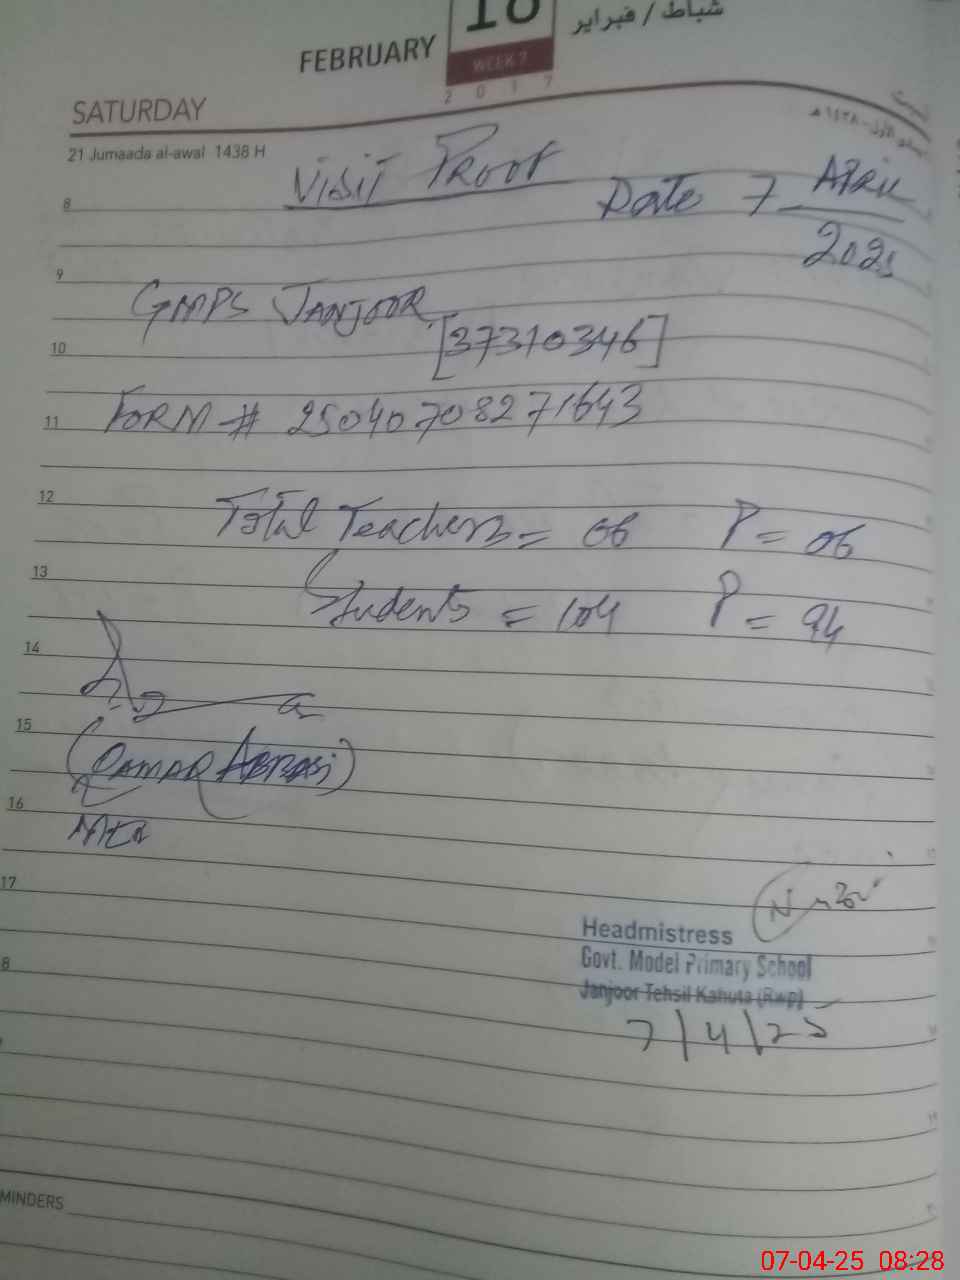 شباط / فبراير
FEBRUARY 18
WEEK 7
2 0 1 7
SATURDAY
21 Jumaada al-awal 1438 H
Visit Proof
Date 7 April
2025
GMPS JANJOOR
[37310346]
FORM # 25040708271643
Total Teachers = 06 P = 06
Students = 104 P = 94
(QAMAR ABBASi)
MEA
Headmistress
Govt. Model Primary School
Janjoor Tehsil Kahuta (Rwp)
7/4/25
8
9
10
11
12
13
14
15
16
17
8
MINDERS
07-04-25 08:28